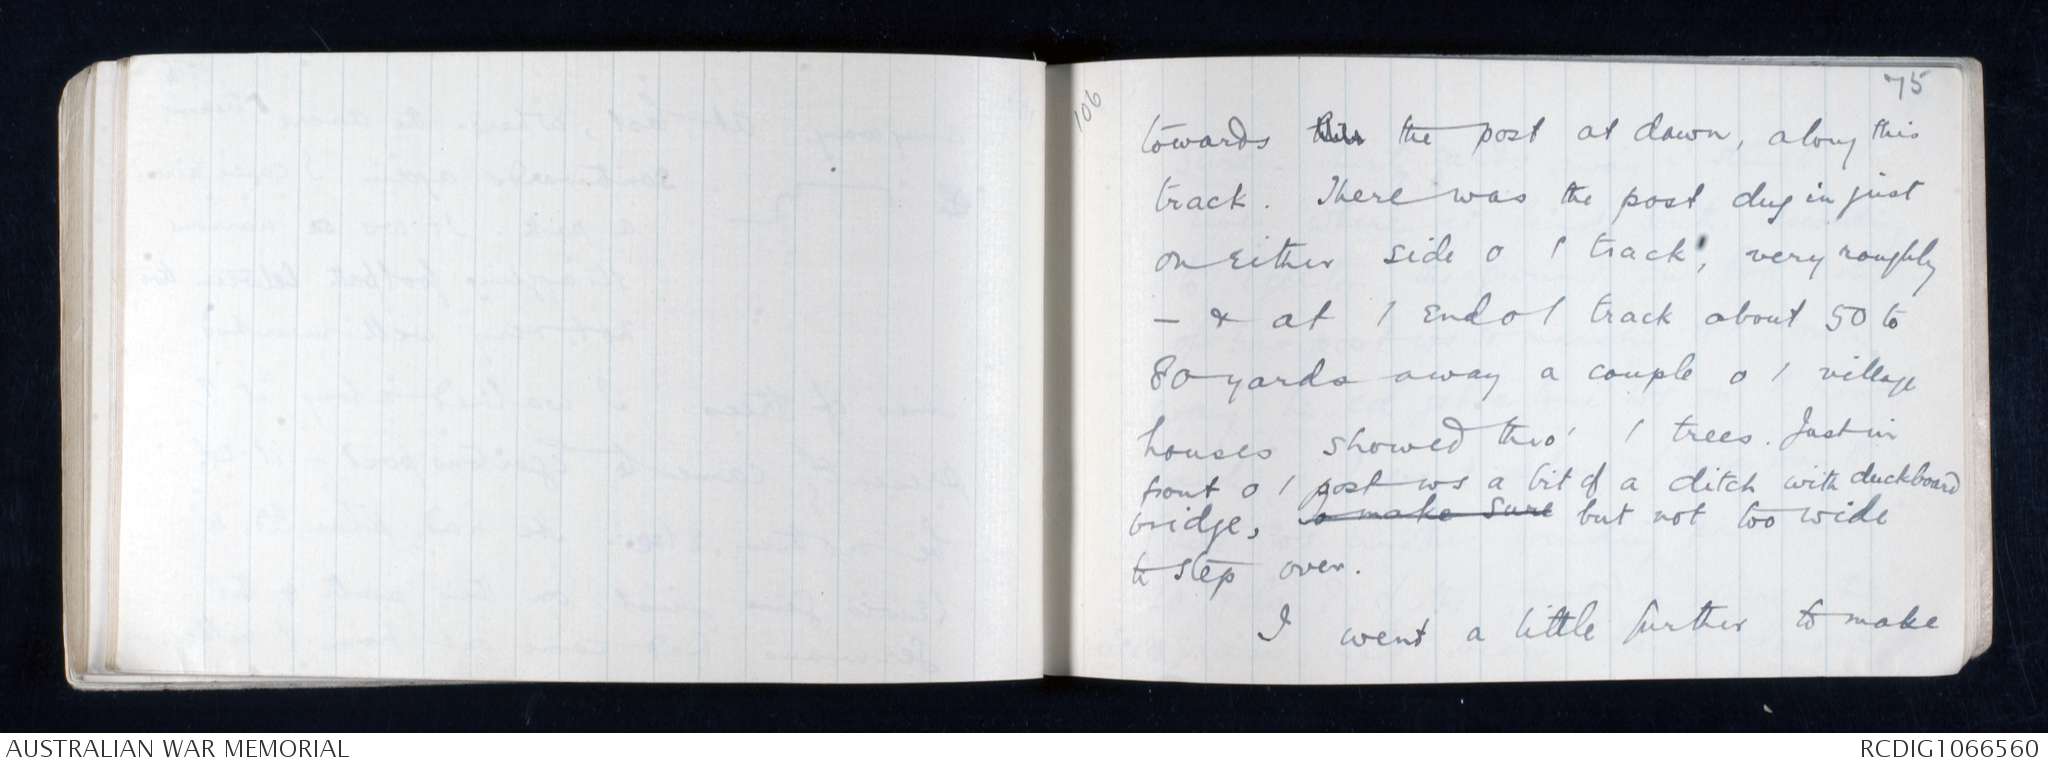 75
106
towards the post at dawn, along this
track. There was the post dug in just
on either side o / track, very roughly
- & at / end o / track about 50 to
80 yards away a couple o / village
houses showed thro' / trees. Just in
front o / post ws a bit of a ditch with duckboard
bridge, to make sure but not too wide
to step over.
I went a little further to make
AUSTRALIAN WAR MEMORIAL
RCDIG1066560